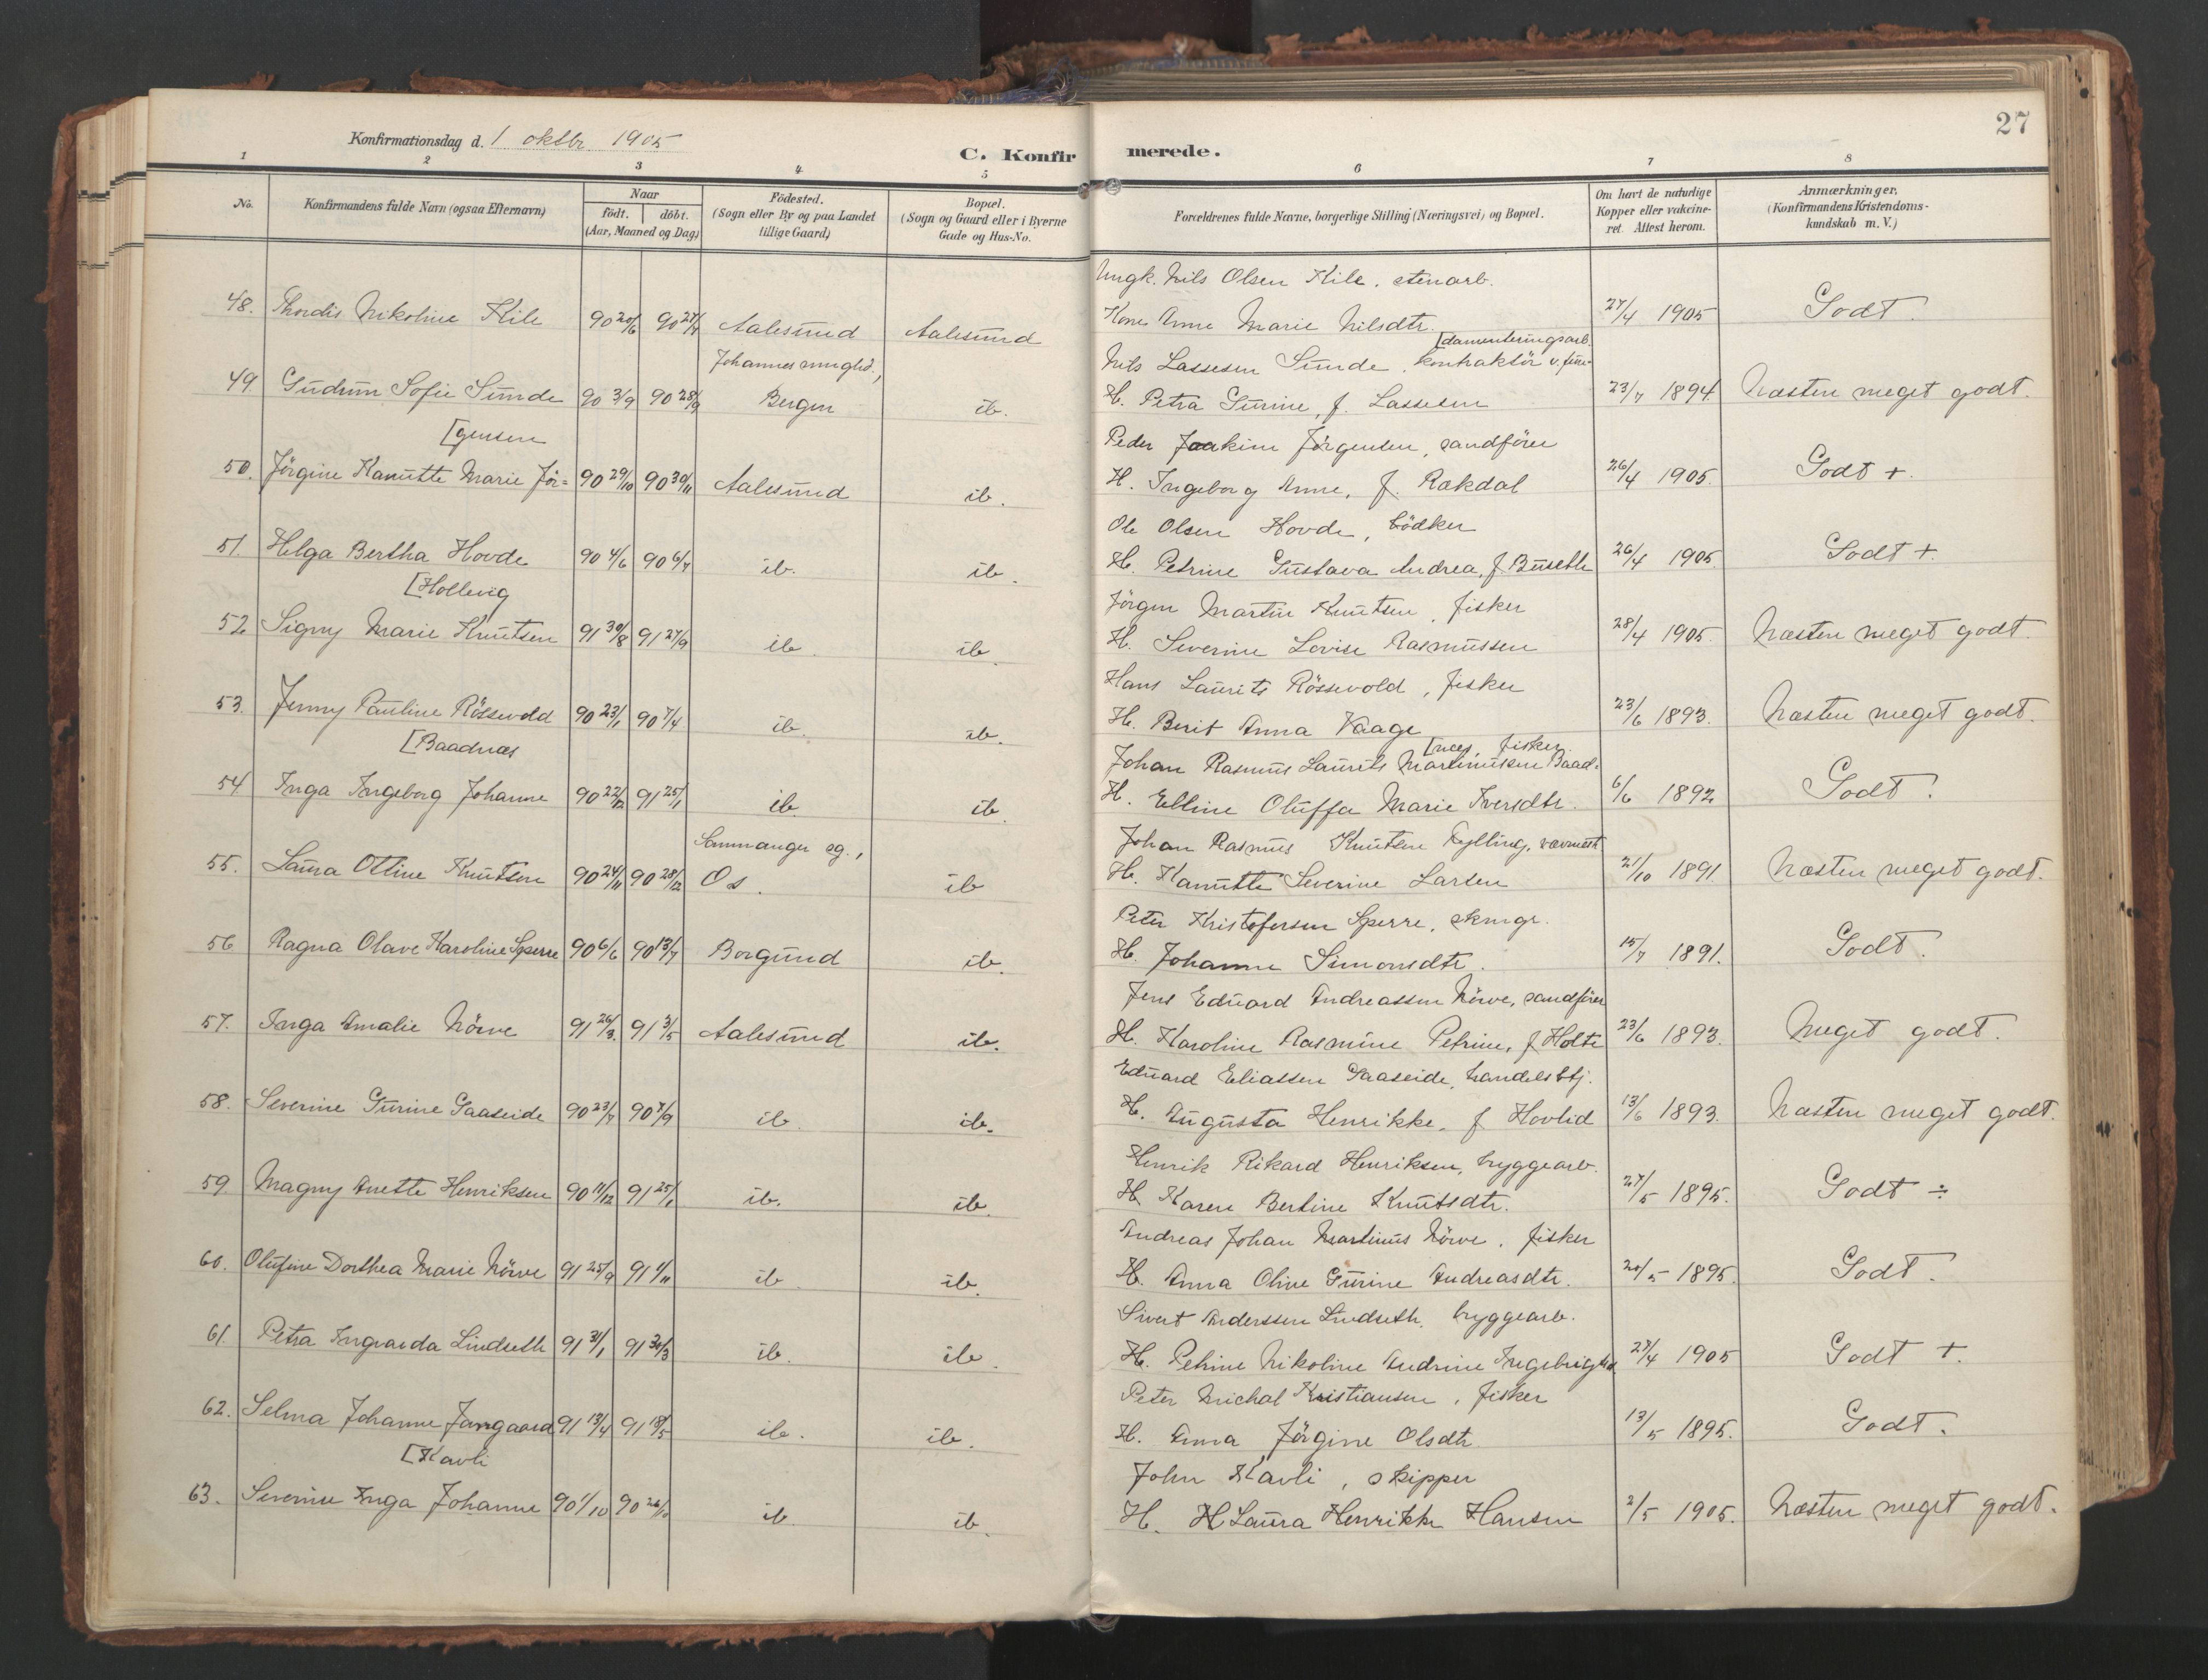 27
Konfirmationsdag d. 1 oktbr. 1905
C. Konfirmerede.
1 2 3 4 5 6 7 8
No.
Konfirmandens fulde Navn (ogsaa Efternavn)
Naar
födt. döbt.
(Aar, Maaned og Dag)
Födested.
(Sogn eller By og paa Landet
tillige Gaard)
Bopæl.
(Sogn og Gaard eller i Byerne
Gade og Hus-No.
Forældrenes fulde Navne, borgerlige Stilling (Næringsvei) og Bopæl.
Om havt de naturlige
Kopper eller vakcine-
ret. Attest herom.
Anmærkninger.
(Konfirmandens Kristendoms-
kundskab m. V.)
Ungk. Nils Olsen Kile, stenarb.
48. Thordis Nikoline Kile 90 20/6 90 27/7 Aalesund Aalesund Kone Anne Marie Nilsdtr. 27/4 1905 Godt.
[damenteringsarb.
Johannes menghd., Nils Lassesen Sunde, kontraktör v. fun-
49. Gudrun Sofie Sunde 90 3/9 90 28/9 Bergen ib. H. Petra Gurine, f. Lassesen 23/7 1894 Næsten meget godt.
[gensen Peder Joakim Jörgensen, sandförer
50. Jörgine Kanutte Marie Jör= 90 29/10 90 30/11 Aalesund ib. H. Ingeborg Anne, f. Rakdal 26/4 1905. Godt +.
Ole Olsen Hovde, bödker
51. Helga Bertha Hovde 90 4/6 90 6/7 ib. ib. H. Petrine Gustava Andrea, f. Buseth 26/4 1905. Godt +.
[Hollevig Jörgen Martin Knutsen, fisker
52. Signy Marie Knutsen 91 30/8 91 27/9 ib. ib. H. Severine Lovise Rasmussen 28/4 1905. Næsten meget godt.
Hans Laurits Rössevold, fisker
53. Jenny Pauline Rössevold 90 23/1 90 7/4 ib. ib. H. Berit Anna Vaage 23/6 1893. Næsten meget godt.
[næs, fisker.
[Baadnæs Johan Rasmus Laurits Martinussen Baad-
54 Inga Ingeborg Johanne 90 22/12 91 25/1 ib. ib. H. Elline Oluffa Marie Iversdtr. 6/6 1892 Godt.
Sammanger sg., Johan Rasmus Knutsen Kylling,
55. Laura Otline Knutsen 90 24/11 90 28/12 Os. ib H. Kanutte Severine Larsen 21/10 1891. Næsten meget godt.
Peter Kristofersen Sperre, skmgr.
56 Ragna Olave Karoline Sperre 90 6/6 90 13/7 Borgund ib. H. Johanne Simonsdtr. 15/7 1891. Godt.
Jens Eduard Andreassen Nörve, sandförer
57. Inga Amalie Nörve 91 26/3. 91 3/5 Aalesund ib. H. Karoline Rasmine Petrine, f Holte 23/6 1893. Meget godt.
Eduard Eliassen Gaaseide, handelsbtj.
58. Severine Gurine Gaaseide 90 23/7 90 7/9 ib. ib. H. Augusta Henrikke, f Hovlid 13/6 1893. Næsten meget godt.
Henrik Rikard Henriksen, bryggearb.
59. Magny Anette Henriksen 90 11/12 91 25/1 ib. ib. H. Karen Bertine Knutsdtr. 27/5 1895. Godt ÷
Andreas Johan Martinus Nörve, fisker
60. Olufine Dorthea Marie Nörve 91 25/9 91 1/11 ib. ib. H. Anna Oline Gurine Andreasdtr. 20/5 1895. Godt.
Sivert Anderssen Lindseth, bryggearb.
61. Petra Ingvarda Lindseth 91 31/1 91 30/3 ib. ib. H. Petrine Nikoline Andrine 27/4 1905 Godt +.
Peter Michal Kristiansen, fisker
62. Selma Johanne Jangaard 91 13/4 91 18/5 ib. ib. H. Anna Jörgine Olsdtr 13/5 1895. Godt.
[Kavli John Kavli, skipper
63. Severine Inga Johanne 90 1/10 90 26/12 ib. ib. H. H Laura Henrikke Hansen 2/5 1905. Næsten meget godt.